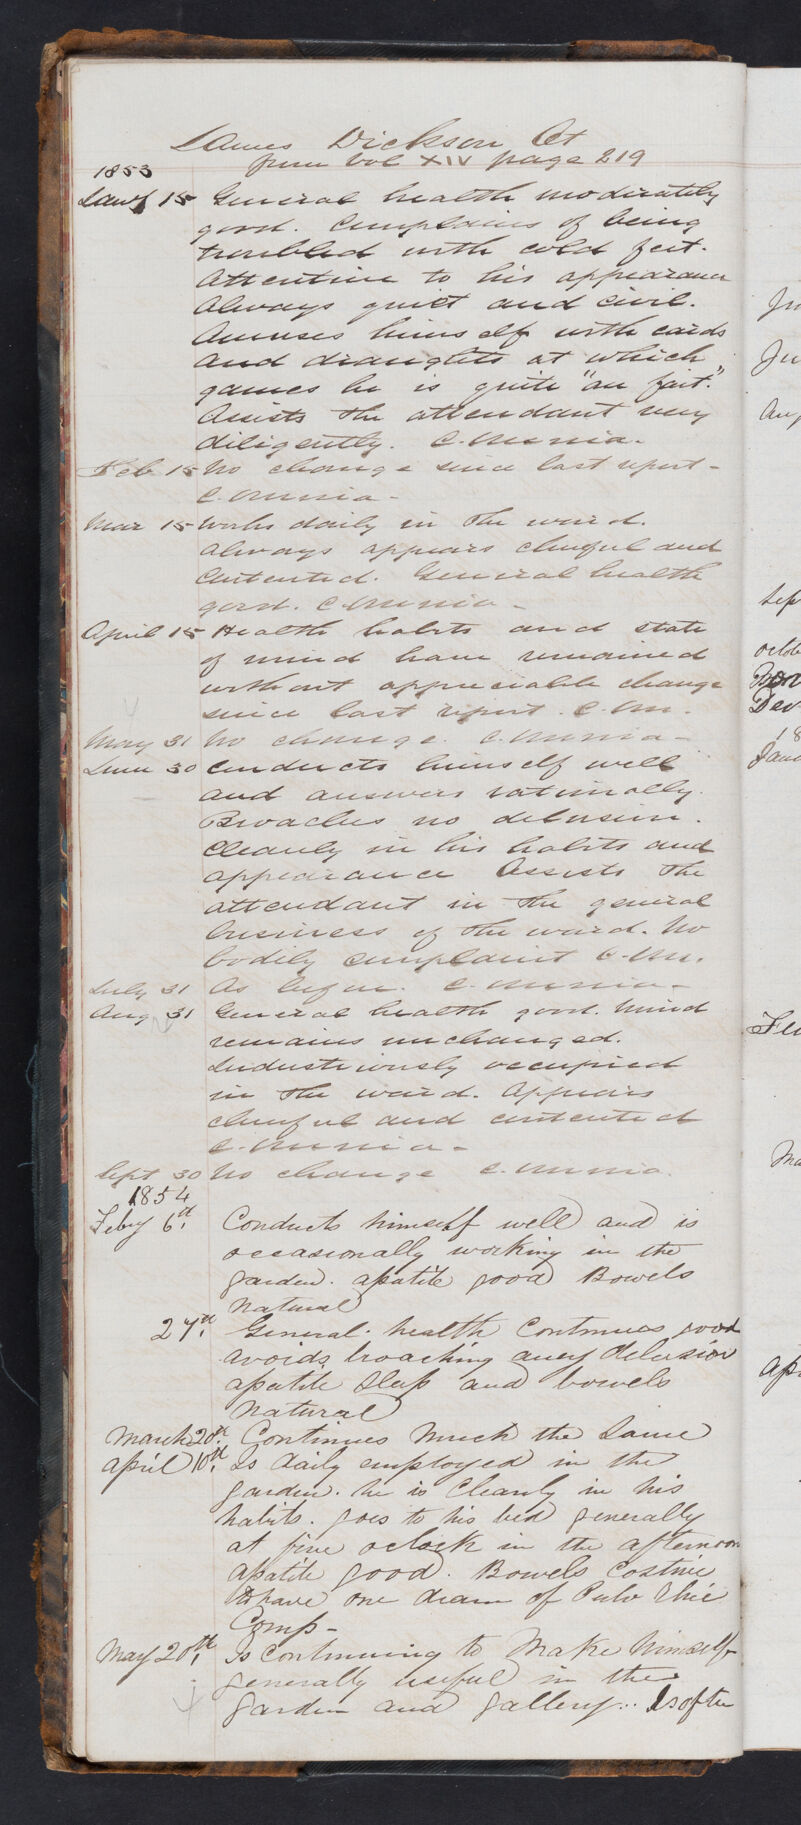 James Dickson Ct
from Vol XIV page 219
1853
Jany 15 General health moderately
good. Complains of being
troubled with cold feet.
Attentive to his appearance
Always quiet and civil.
Amuses himself with cards
and draughts at which
games he is quite "au fait."
Assists the attendant very
diligently. C. Omnia.
Feb 15 No change since last report -
C. Omnia -
Mar 15 Works daily in the ward.
Always appears cheerful and
contented. General health
good. C. Omnia -
April 15 Health habits and state
of mind have remained
without appreciable change
since last report. C. Om.
May 31 No change. C. Omnia -
June 30 Conducts himself well
and answers rationally.
Broaches no delusion.
Cleanly in his habits and
appearance Assists the
attendant in the general
business of the ward. No
bodily complaint C. Om.
July 31 As before. C. Omnia -
Aug 31 General health good. Mind
remains unchanged.
Industriously occupied
in the ward. Appears
cheerful and contented
C. Omnia -
Sept 30 No change C. Omnia.
1854
Feby 6th Conducts himself well and is
occasionally working in the
garden. apatite good Bowels
Natural
27th General health Continues good
avoids broaching aney delusion
apatite Sleep and bowels
Natural
March 20th Continues Much the Same
April 10th Is daily employed in the
garden. he is Cleanly in his
habits. goes to his bed generally
at five oclock in the afternoon
apatite good. Bowels Costive
to have one dram of Pulv Rhei
Comp -
May 20th Is Continuing to Make himself
generally useful in the
Garden and gallery... Is often
Sep
Dec
18
Feb
Ma
Apr